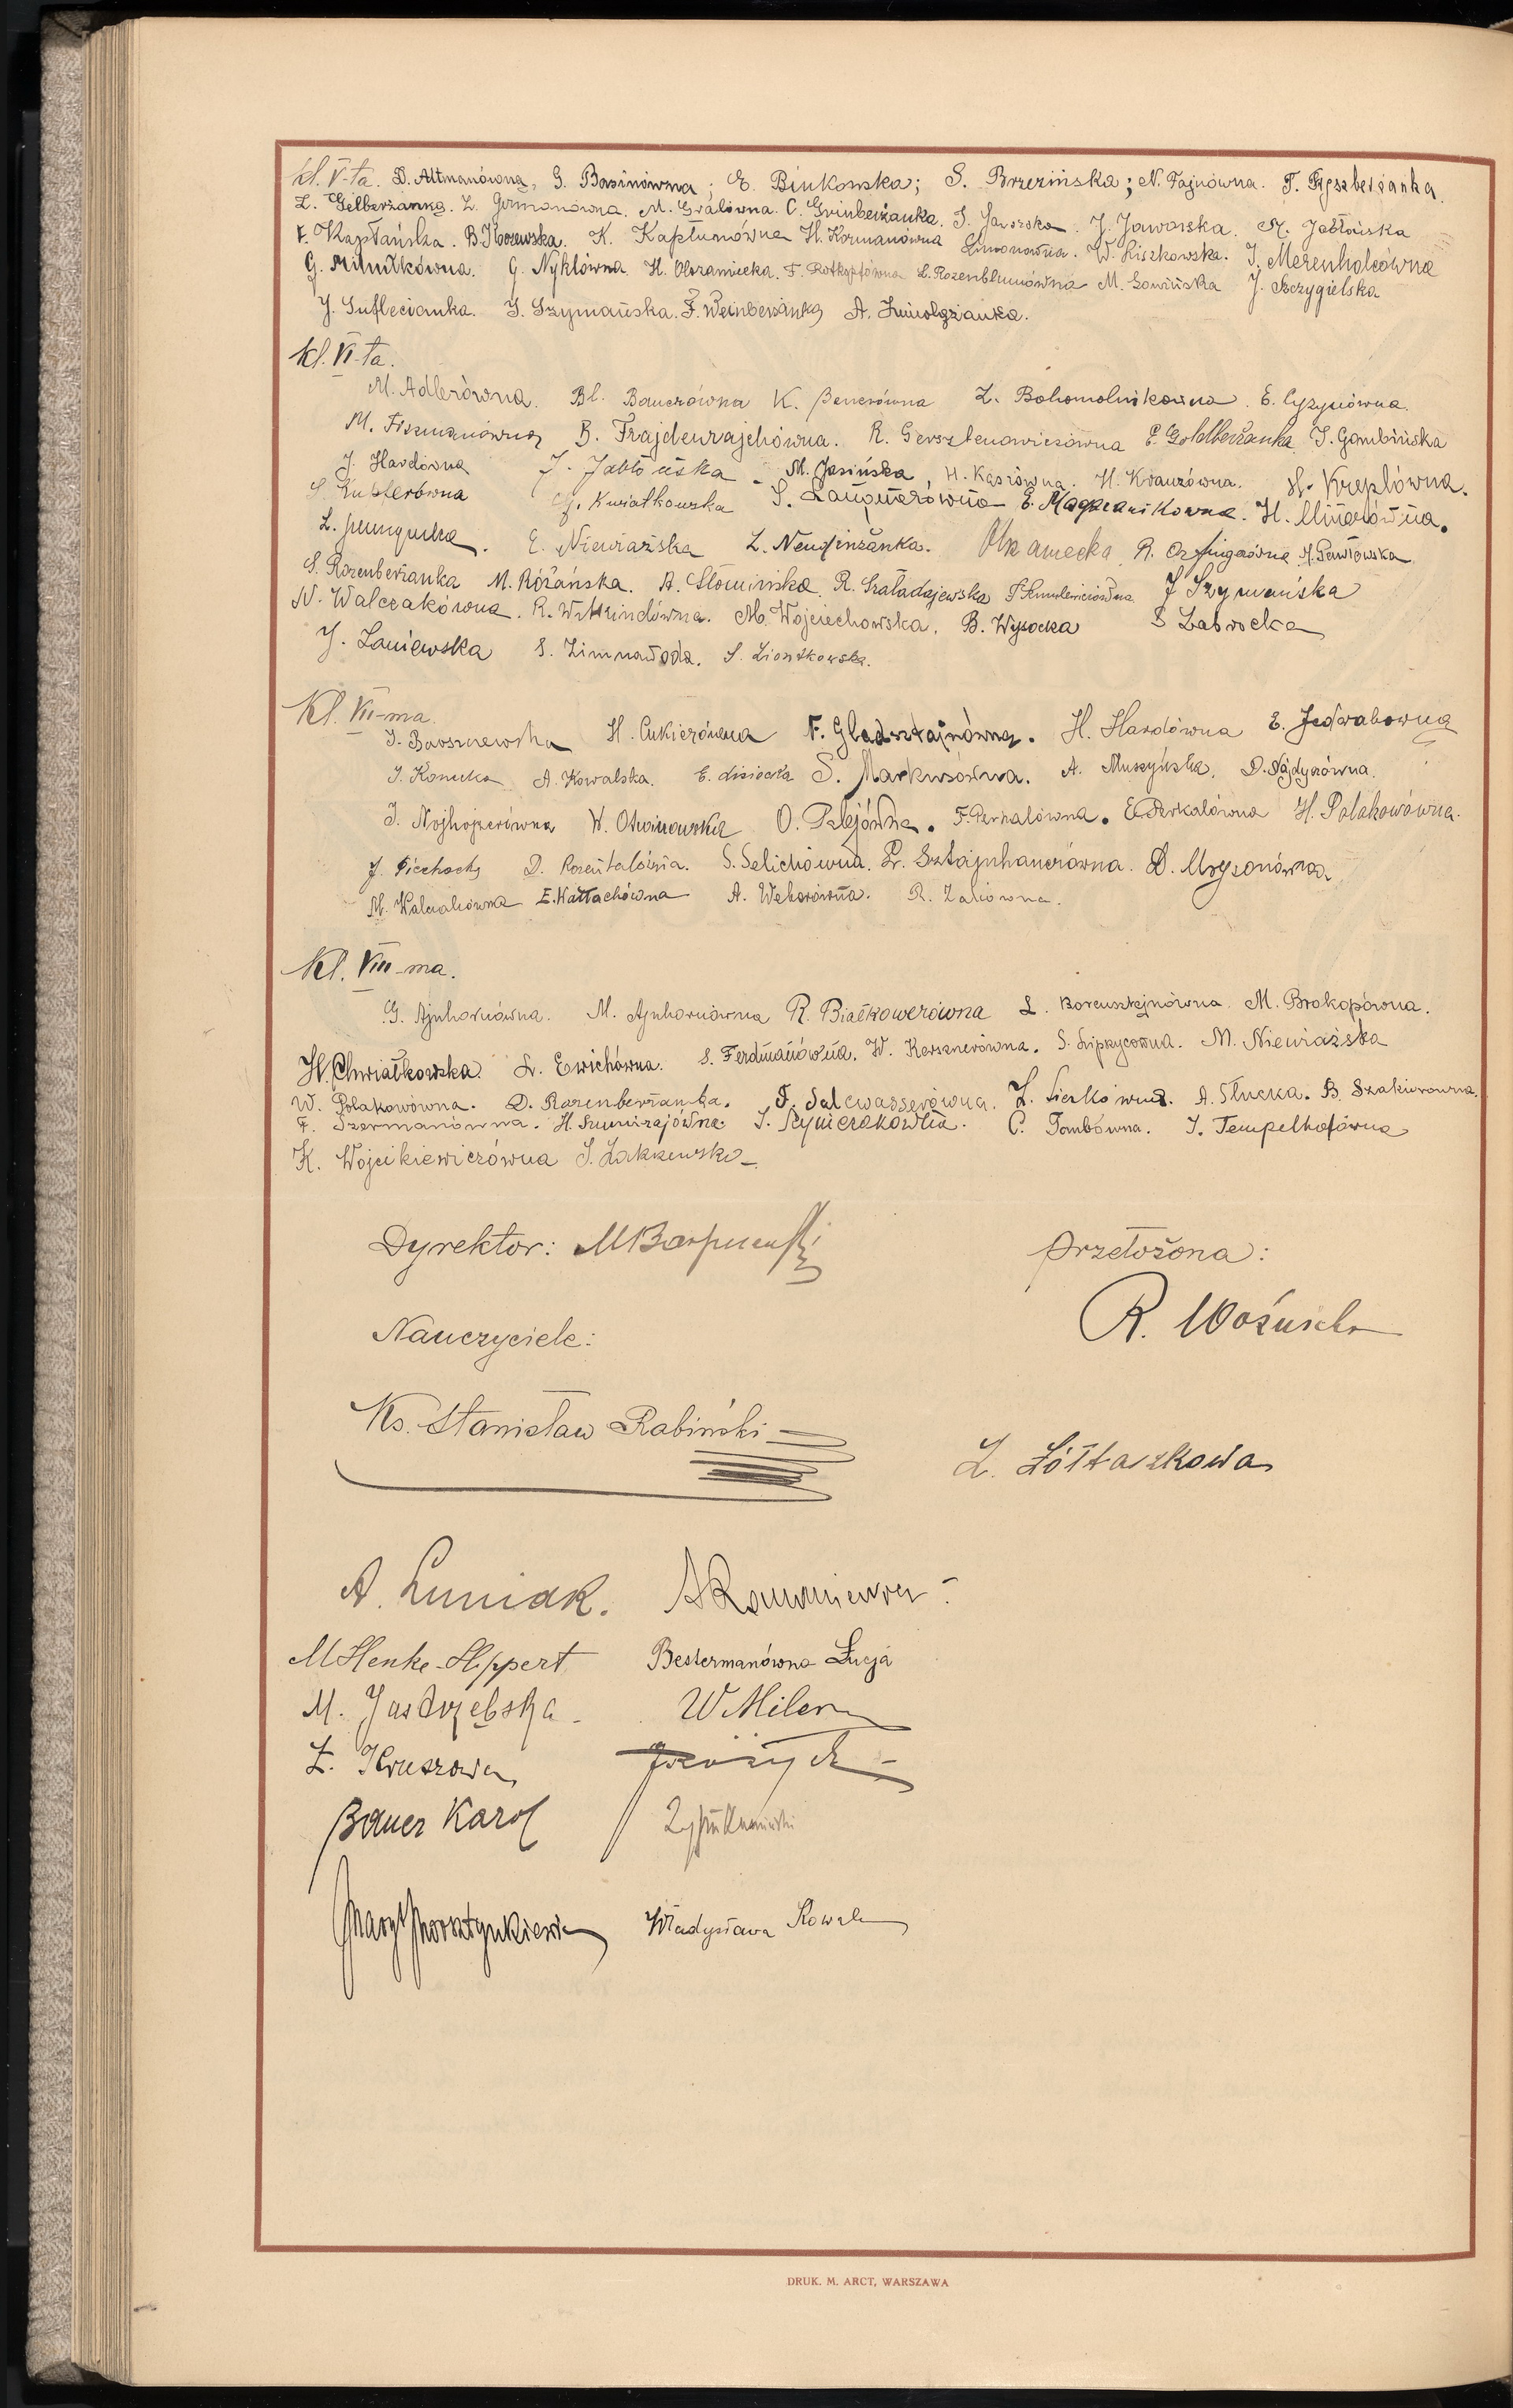 kl. V-ta. D. Altmanówna, G. Basinówna; E. Binkowska; S. Brzezińska; N. Fajnówna. F. Fiszberżanka.
Z. Gelberżanka. Z. Gurmanówna. M. Gralówna. C. Grinberżanka. S. Jaworska. J. Jaworska. M. Jabłońska
F. Kapłańska. B. K. Kapłunówna H. Kormanówna Limonówna. W. Liszkowska. I. Merenholcówna
G. Milnikówna. G. Nyklówna H. Obramiecka. F. Rotkopfówna L. Rozenblumówna M. Sowińska J. Szczygielska
J. Suflecianka. S. Szymańska. F. Weinberżanka A.
kl. VI-ta.
M. Adlerówna. Bl. Bauerówna K. Benerówna Z. Bohomolnikowna. E. Cyzynówna.
M. Fiszmanówna B. Frajdenrajchówna. R. Gersztenowiczówna E. Goldberżanka S. Gombińska
J. Hardówna J. Jabłońska M. Jasińska, H. Kasrówna. H. Krauzówna. H. Kreplówna.
S. Kuśterówna J. Kwiatkowska S. E. Magazanikowna. H. Minerówna.
E. Niewiażska Z. Neufinżanka. R. M. Pawłowska
S. Rozenberżanka M. Różańska. A. Słomińska R. Szaładajewska J. Szymańska
N. Walczakówna. R. Witelindówna. M. Wojciechowska. B. Wysocka S Zabrocka
J. Zaniewska S. Zimnawoda. S. Ziontkowska.
Kl. VII-ma.
J. Baoszewska H. Cukierówna F. Gladsztajnówna. H. Hardówna E. Jedwabowna
J. Konecka A. Kowalska. E. Lisiecka S. Markusówna. A. Muszyńska. D. Najdyzówna.
I. Nojhojzerówna W. Otwinowska O. F. Perkalówna. E. Perkalówna H. Polakowówna.
J. Piechocka D. Rozentalówna. S. Selichówna. Sztajnhauerówna. D.
M. Walczakówna E. Wałłachówna A. Weberówna. R. Zaliówna.
Kl. VIII-ma.
G. Ajnhornówna. M. Ajnhornówna R. Białkowerówna L. Borensztejnówna M. Prokopówna.
H. Chwiałkowska. Ewichówna. S. Ferdmanówna. W. Kersznerówna. S. Lipszycówna. M. Niewiażska
W. Polakowówna. D. Rozenberżanka. F. Salcwasserówna. Z. Sierkówna. A. Słucka. B. Szakinówna.
F. Szermanówna. H. Szmirajówna. C. Tombówna. I. Tempelhofówna
K. Wojcikiewiczówna S. Zakrzewska
Dyrektor: Przełożona:
R. Woźnicka
Nauczyciele:
Ks. Stanisław Rabiński
Z. Żółtaszkowa
A. Luniak.
M Henke-Hippert Bestermanówna Łucja
M. Jastrzębska W Miler
Z. Kruszowa
Bauer Karol
Władysława Kowal
DRUK. M. ARCT, WARSZAWA